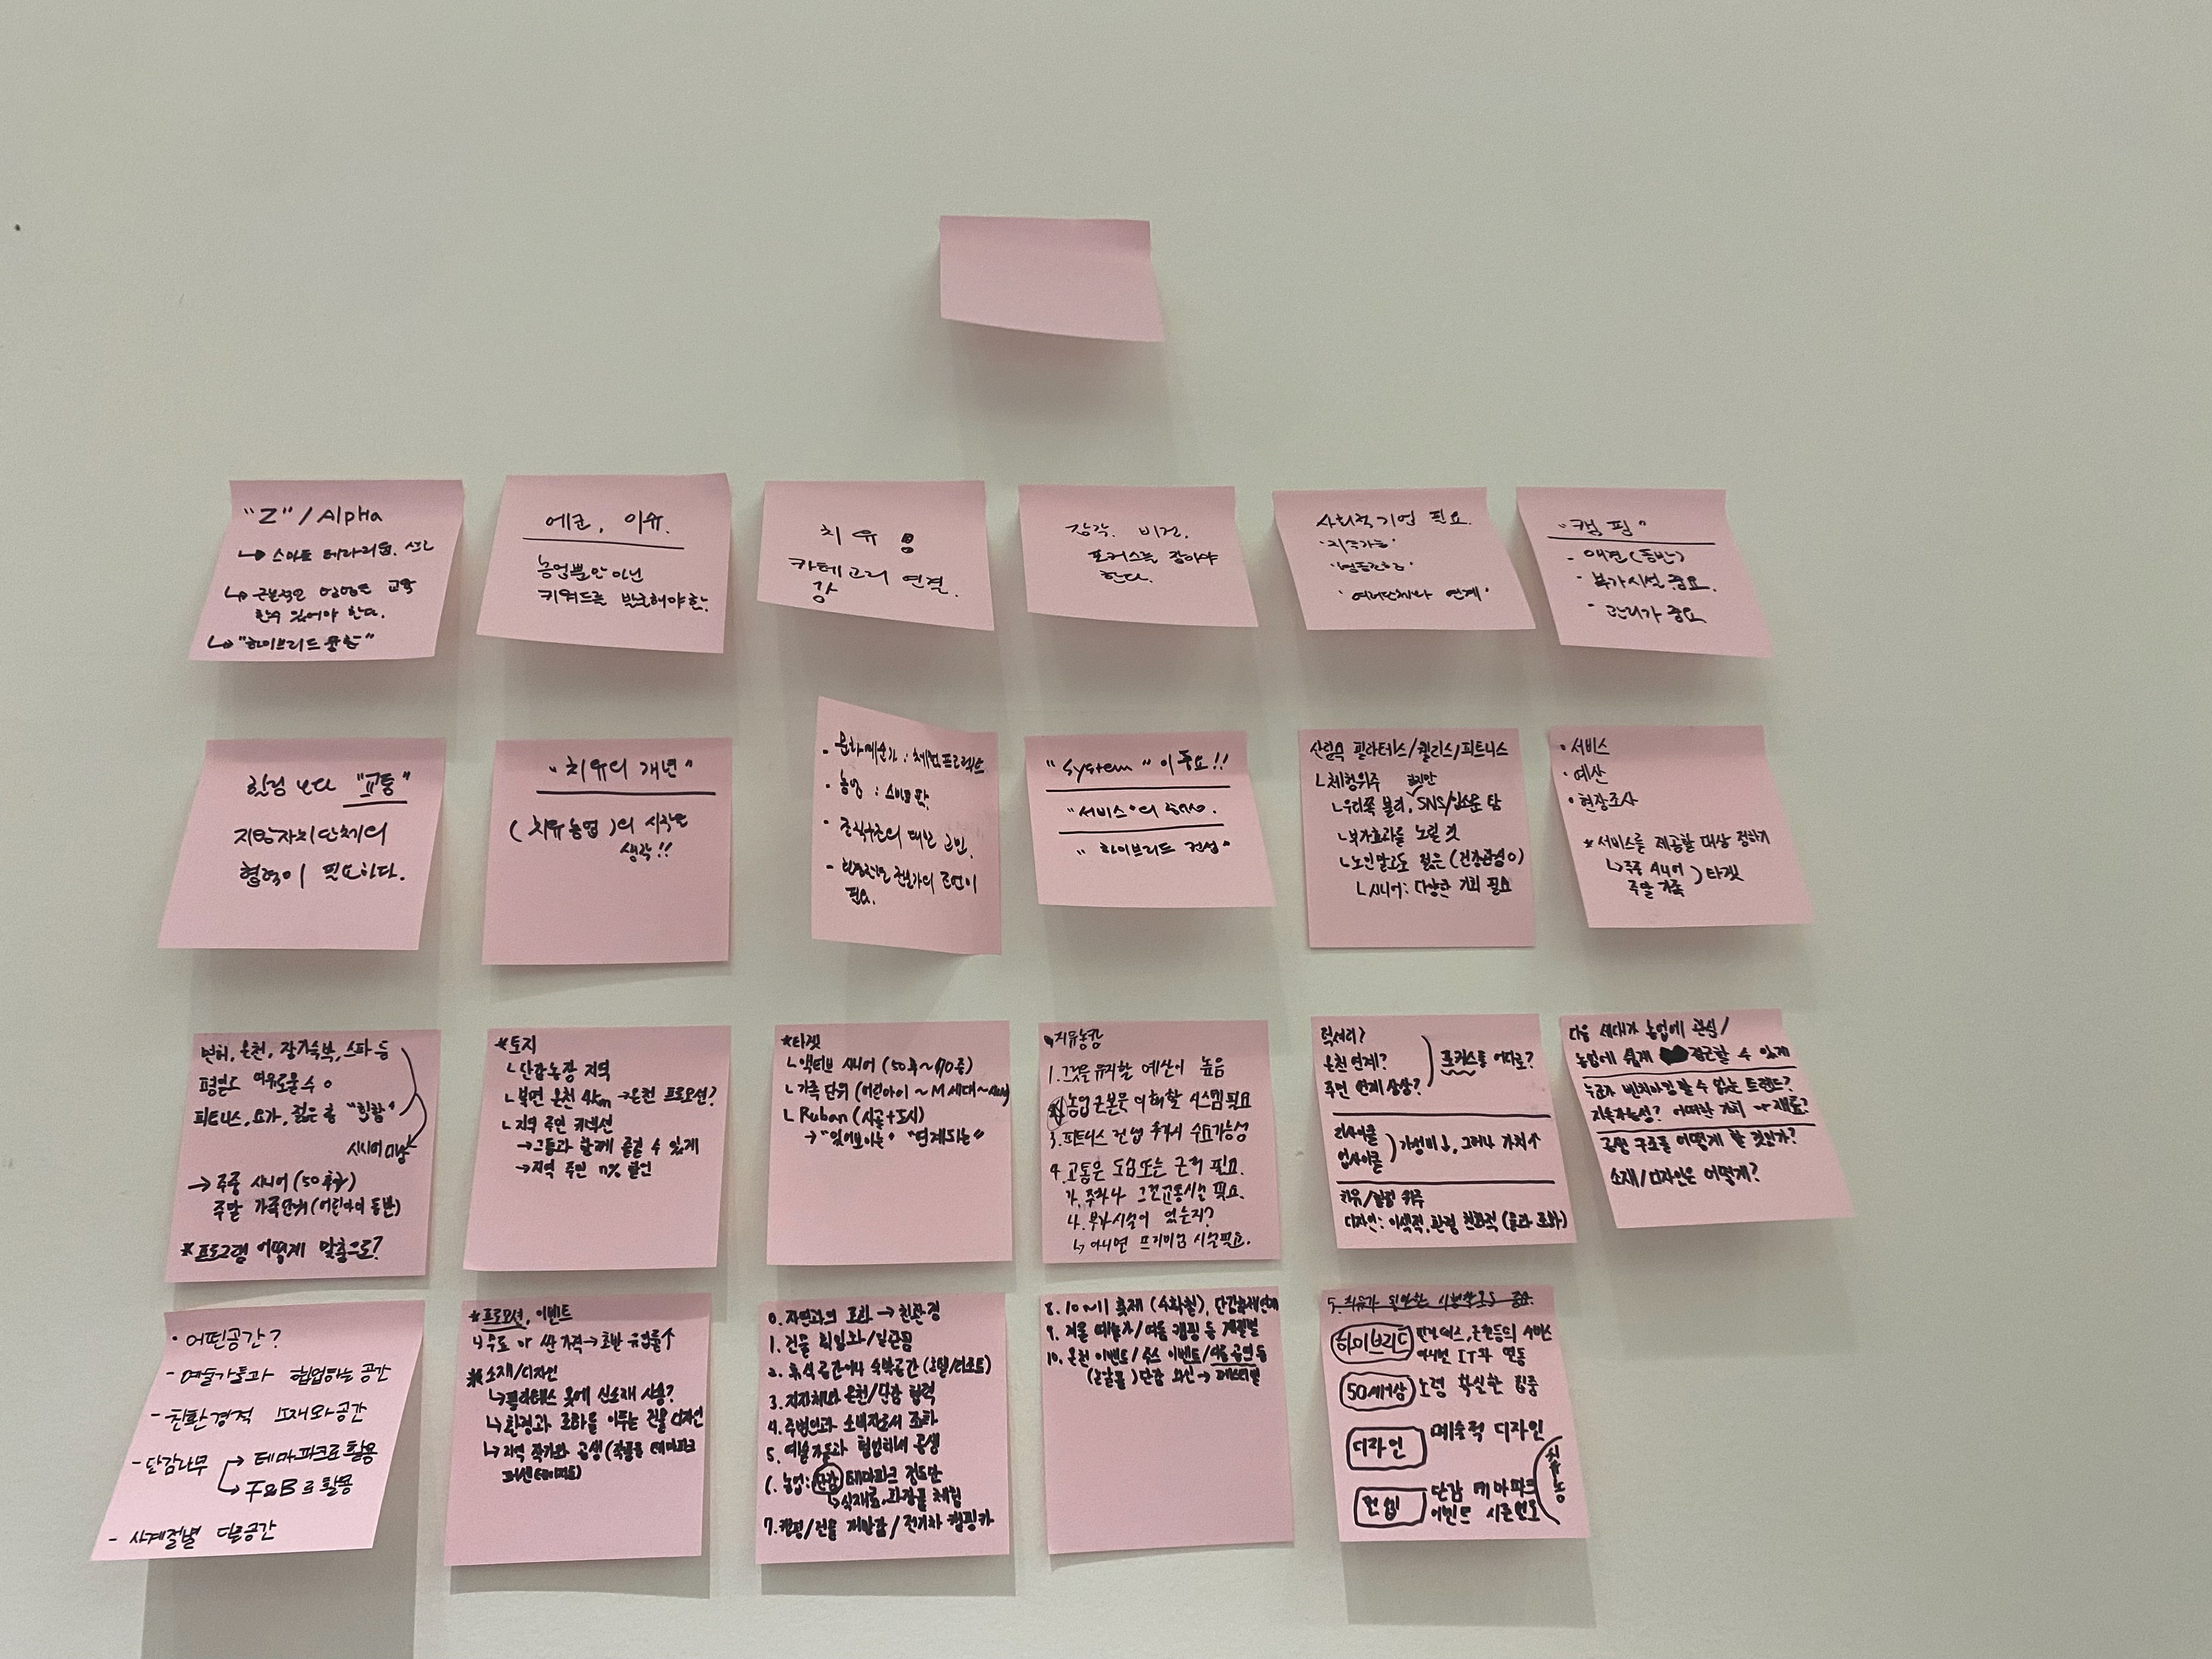 "Z"/Alpha
↳ 스마트 테라리움.
↳ 근본적인 교육
할수 있어야 한다.
↳ "하이브리드 융합"
에코, 이슈.
농업뿐만 아닌
키워드를 발굴해야함.
치유
카테고리 연결.
강
장각. 비건.
포커스를 잡아야
한다.
사회적기업 필요.
'지속가능'
'여러단체나 연계'
"캠핑"
- 애견(동반)
- 부가시설 중요.
- 관리가 중요
힐링 보다 "교통"
지방자치단체의
협력이 필요하다.
"치유의 개념"
(치유농업)의 시작은
생각!!
- 문화예술가 : 체험프로젝트
- 농업 : 스마트팜
- 조직구조의 대한 고민.
- 현장전문 전문가의 조언이
필요.
"System"이 중요!!
"서비스"의 형태.
"하이브리드 컨셉"
산림욕 필라테스/헬리스/피트니스
ㄴ체험위주
ㄴ우리쪽 불리, 하지만 SNS/입소문 탐
ㄴ부가효과를 노릴 것
ㄴ노인말고도 젊은(건강관심 0)
ㄴ시니어: 다양한 기회 필요
• 서비스
• 예산
• 현장조사
* 서비스를 제공할 대상 정하기
↳주중 시니어
주말 가족 ) 타겟
변화, 온천, 장기숙박, 스파 등
평일도 여유로울 수 o
피트니스, 요가, 젊은 층 "힙함"
시니어 only
→ 주중 시니어 (50 후반)
주말 가족단위 (어린아이 동반)
* 프로그램 어떻게 맞춤으로?
*토지
ㄴ단감농장 지역
ㄴ북면 온천 4km →온천 프로모션?
ㄴ지역 주민 커뮤션
→그들과 함께 즐길 수 있게
→지역 주민 n% 할인
*타겟
ㄴ액티브 시니어 (50후~70중)
ㄴ가족 단위 (어린아이 ~ M세대~
ㄴRuban (시골+도시)
→ "있어보이는" "연계되는"
치유농장
1. 그것을 유지할 예산이 높음
농업 근본을 이해할 시스템 필요
3. 피트니스 컨셉 추가시 수요가능성
4. 교통은 도심또는 근처 필요.
가. 주차나 그런교통시설 필요.
나. 부가시설이 있는지?
↳ 아니면 프리미엄 시설필요.
럭셔리?
온천 연계?
주민 연계 상생?
포커스를 어디로?
리사이클
업사이클
가성비↓, 그러나 가치↑
치유/힐링 위주
디자인: 이색적, 환경 친화적 (들과 조화)
다음 세대가 농업에 관심/
농업에 쉽게 접근할 수 있게
누군가 벤치마킹 할 수 있는 트렌드?
지속가능성? 어떠한 가치 or 재료?
공생 구조를 어떻게 할 것인가?
소재/디자인은 어떻게?
• 어떤공간?
- 예술가들과 협업하는 공간
- 친환경적 소재와공간
- 단감나무 → 테마파크로 활용
→ F&B로 활용
- 사계절별 다른공간
*프로모션, 이벤트
ㄴ무료 or 싼 가격→초반 유입률↑
*소재/디자인
↳필라테스 옷에 신소재 사용?
↳환경과 조화를 이루는 건물 디자인
↳지역 작가와 공생 (작품을 테마파크
0. 자연과의 조화 → 친환경
1. 건물
2. 휴식 공간이나 숙박공간 (호텔/리조트)
3. 지자체와 온천/단감 협력
4. 주변인과 소비자로서 조화
5. 예술가들과 협업하여 공생
6. 농업: 단감 테마파크 정도만
↳식재료, 화장품 체험
7. 캠핑/건물 재방감/전기차 캠핑카
8. 10~11 축제 (수확철), 단감축제연계
9. 겨울 여름 캠핑 등 계절별
10. 온천 이벤트/주스 이벤트/마을 공연 등
(로컬풀) 단감 와인 → 페스티벌
하이브리드
온천등의 서비스
아니면 IT와 연동
50세이상
노령 확실한 집중
디자인
예술적 디자인
컨셉
단감 테마파크
이벤트 시즌별로
치유농